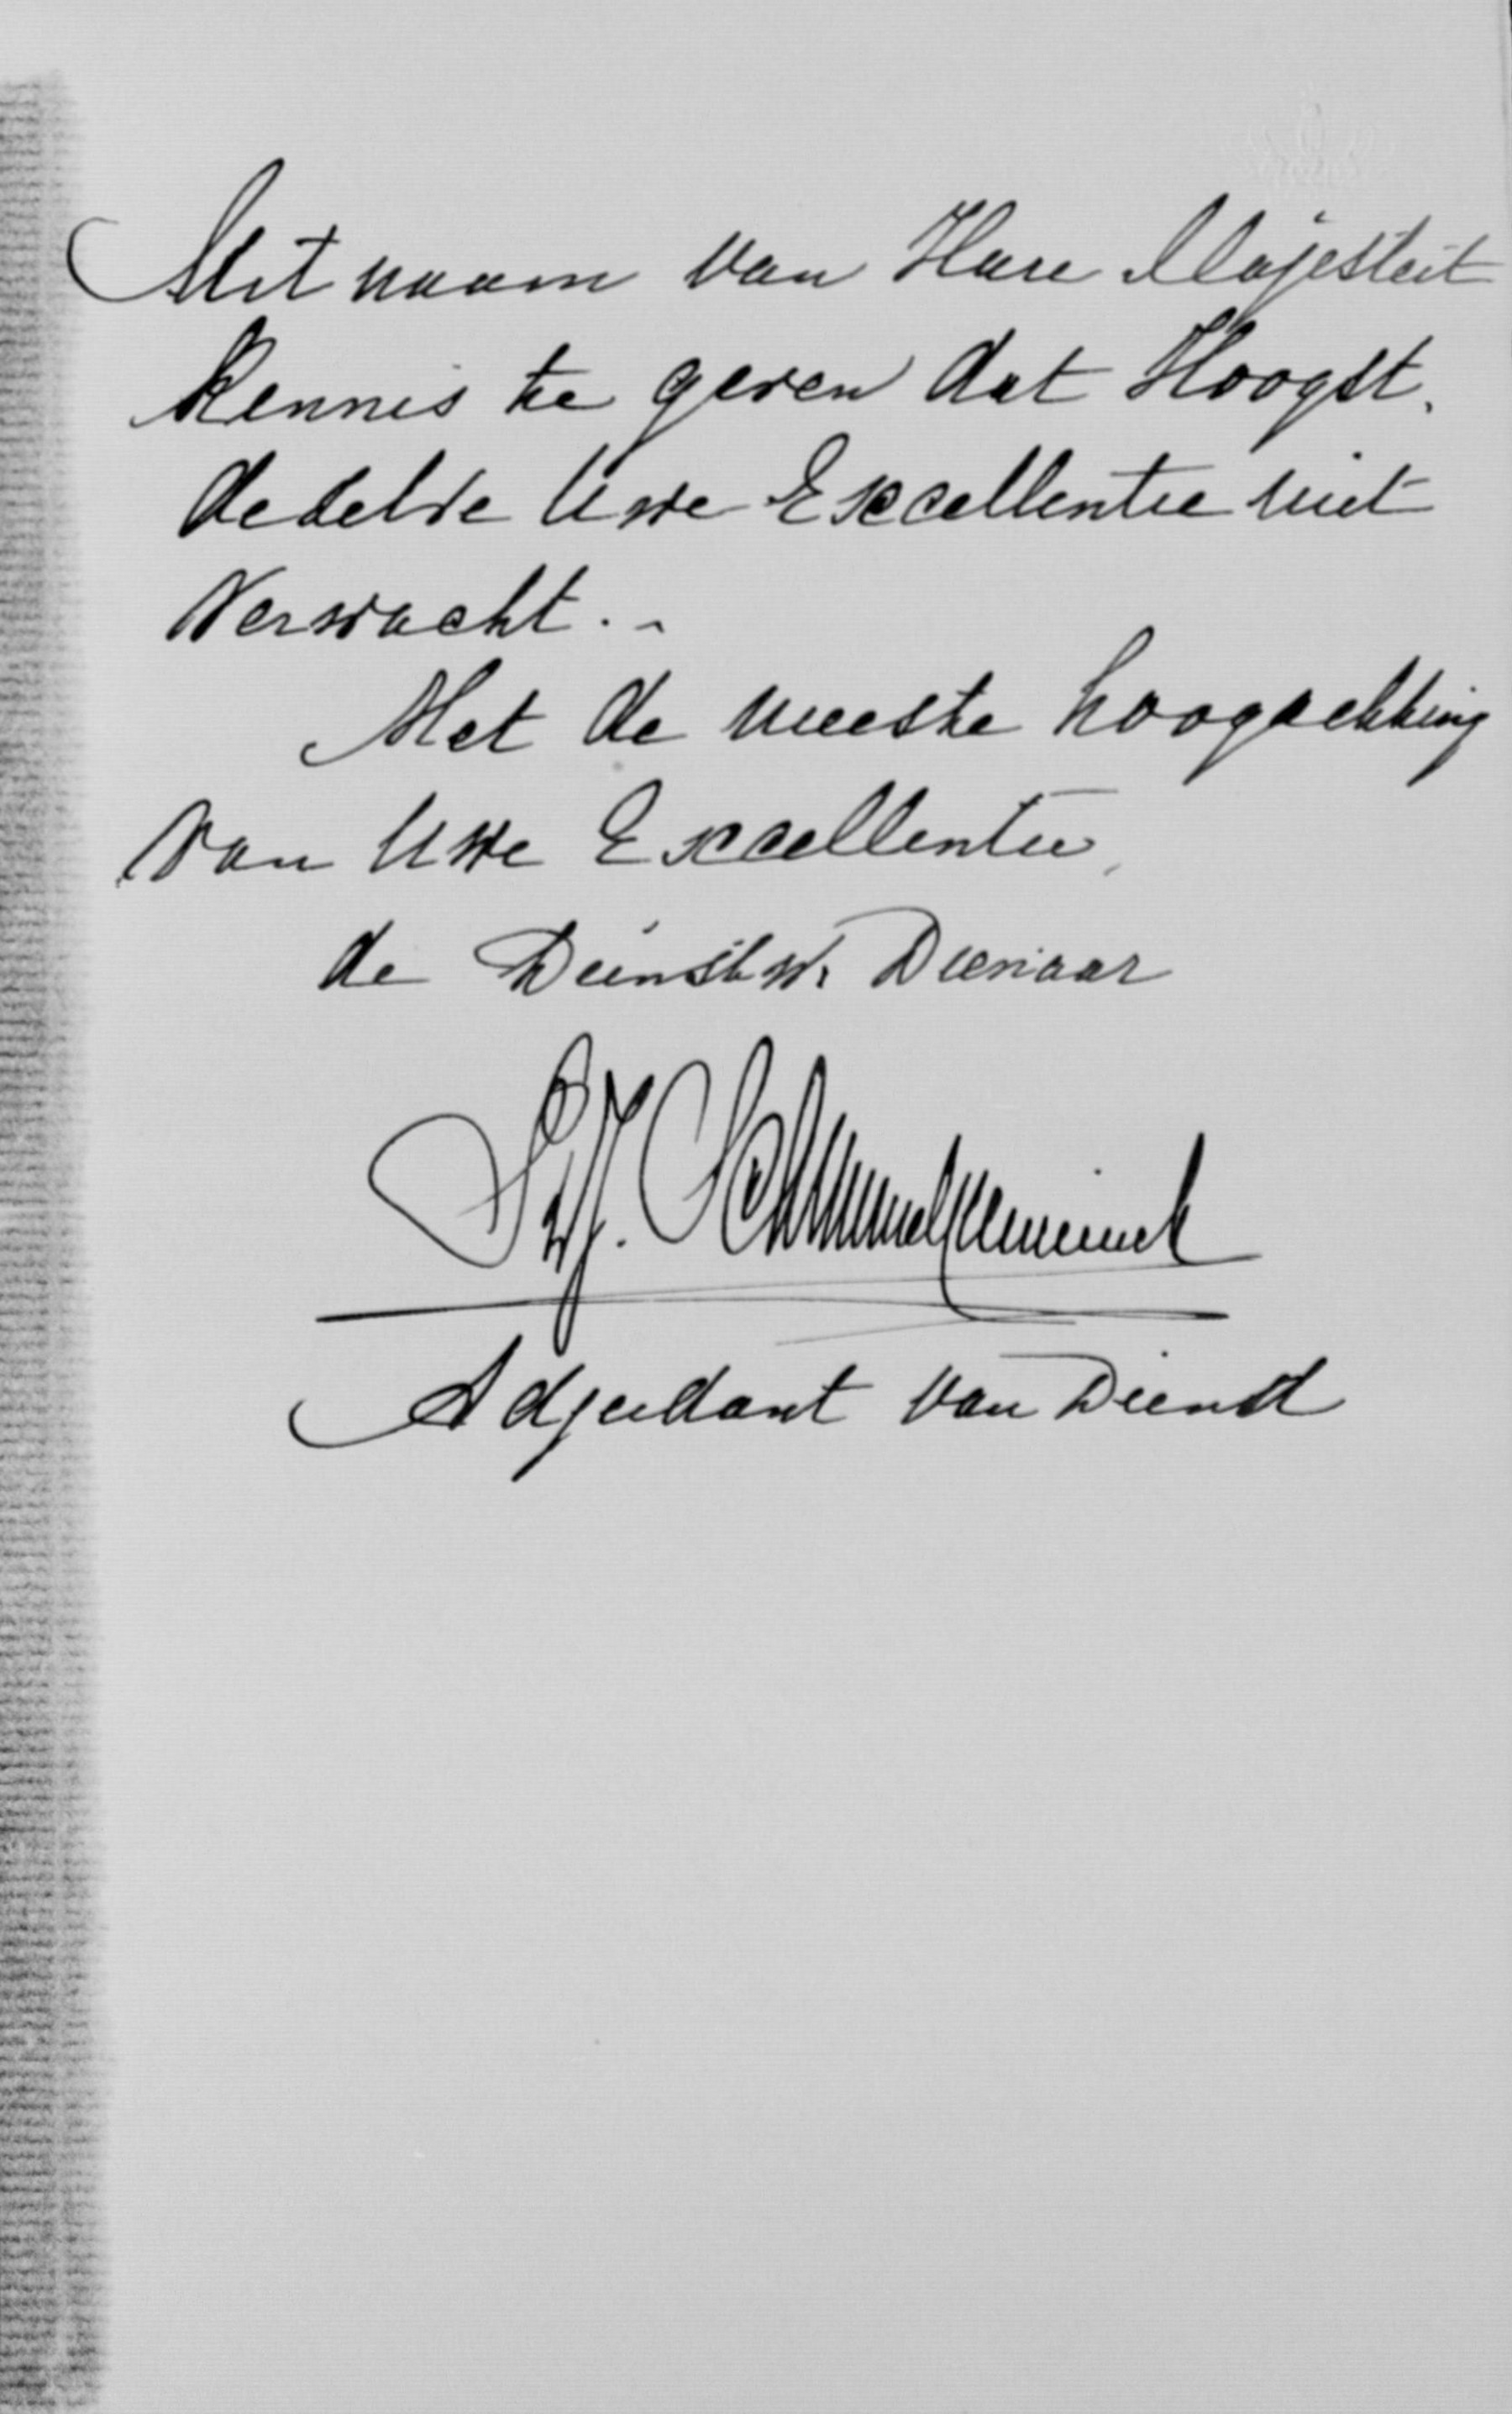 Uit naam van Hare Majesteit
kennis te geven dat Hoogst.
dezelve Uwe Excellentie niet
verwacht. -
Met de meeste hoogachting
van Uwe Excellentie,
de Dienstw. Dienaar
Schimmelpenninck
Adjudant van Dienst